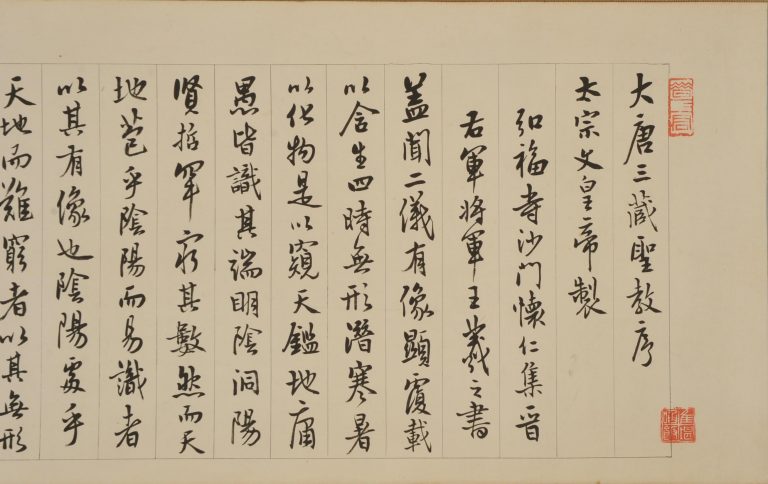 大唐三藏聖教序
太宗文皇帝製
弘福寺沙門懷仁集晉
右軍將軍王羲之書
蓋聞二儀有像顯覆載
以含生四時無形潛寒暑
以化物是以窺天鑑地庸
愚皆識其端明陰洞陽
賢哲罕窮其數然而天
地苞乎陰陽而易識者
以其有像也陰陽處乎
天地而難窮者以其無形